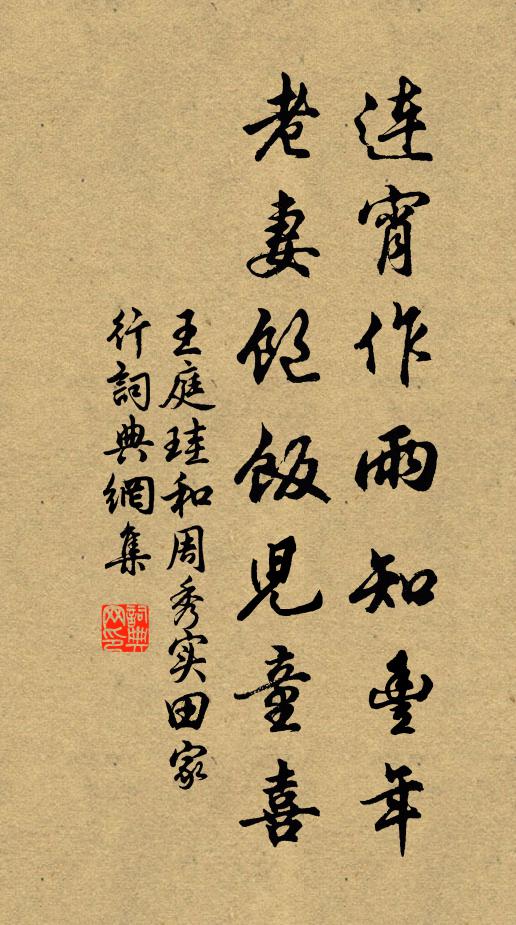 連宵作雨知豊年
老妻飽飯兒童喜
王庭珪和周秀实田家
行詞典網集
詞典网印